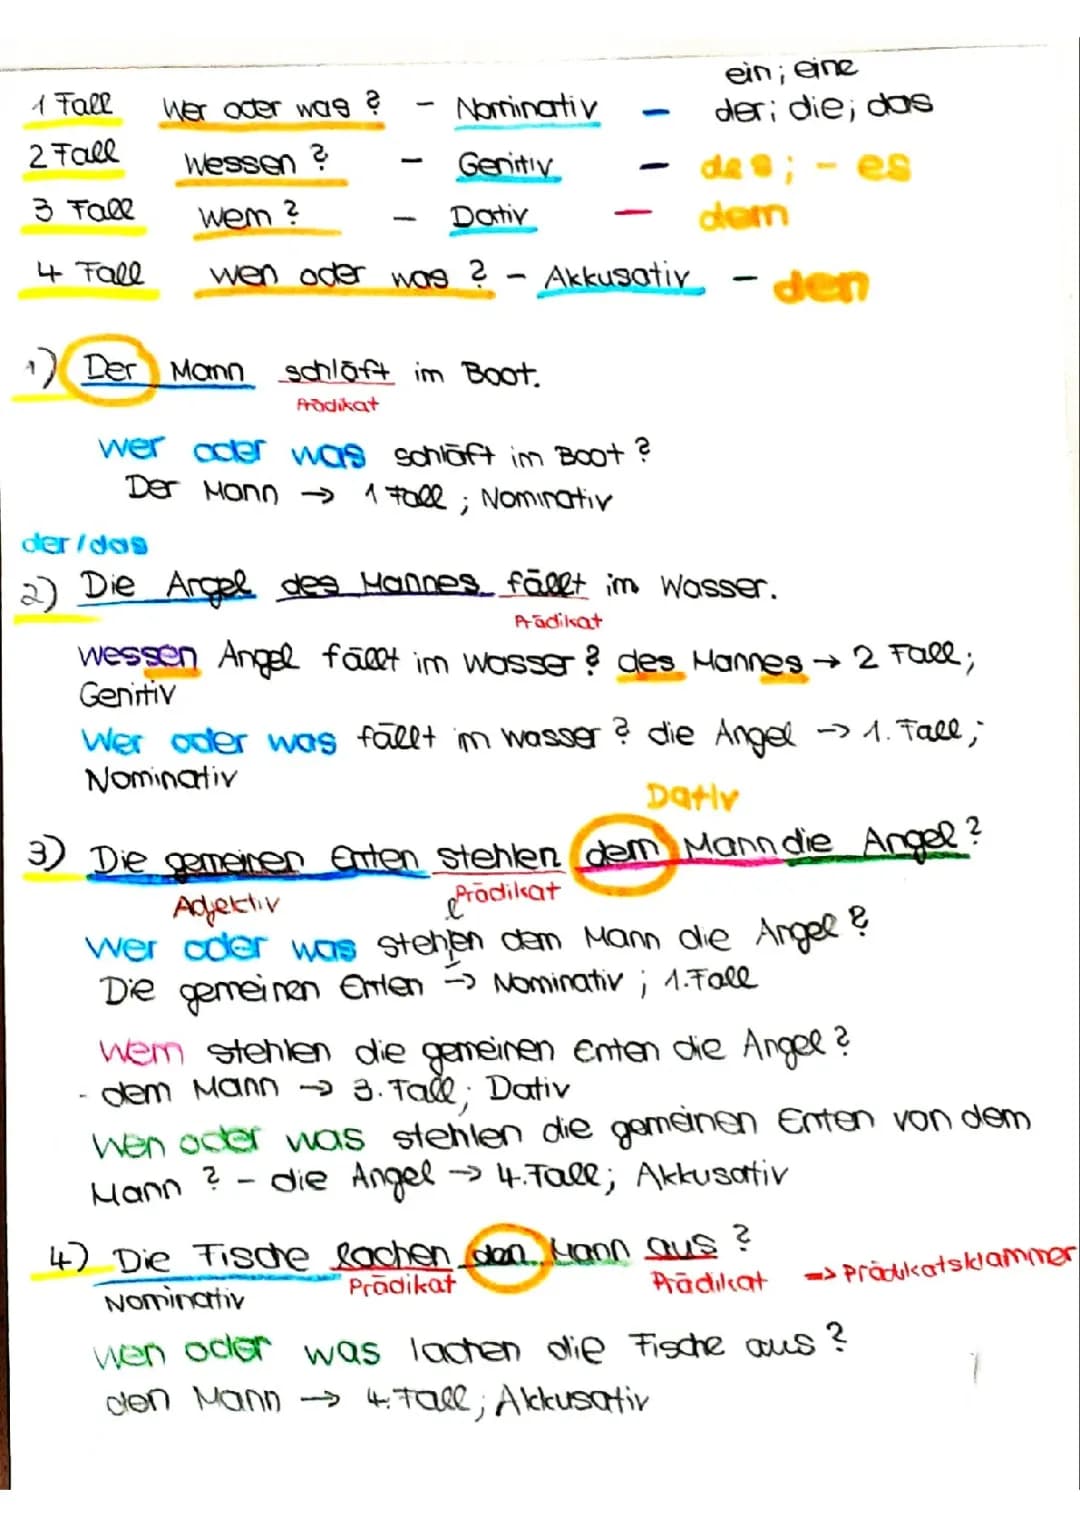 ein; eine
1 Fall Wer oder was? - Nominativ - der; die; das
2 Fall Wessen? - Genitiv - des; - es
3 Fall Wem? - Dativ - dem
4 Fall Wen oder was? - Akkusativ - den
1) Der Mann schläft im Boot.
Prädikat
Wer oder was schläft im Boot?
Der Mann → 1 Fall; Nominativ
der/das
2) Die Angel des Mannes fällt im Wasser.
Prädikat
Wessen Angel fällt im Wasser? des Mannes → 2 Fall;
Genitiv
Wer oder was fällt im Wasser? die Angel → 1. Fall;
Nominativ
Dativ
3) Die gemeinen Enten stehlen dem Mann die Angel?
Adjektiv Prädikat
Wer oder was stehlen dem Mann die Angel?
Die gemeinen Enten → Nominativ; 1. Fall
Wem stehlen die gemeinen Enten die Angel?
- dem Mann → 3. Fall; Dativ
Wen oder was stehlen die gemeinen Enten von dem
Mann? - die Angel → 4. Fall; Akkusativ
4) Die Fische lachen den Mann aus?
Nominativ Prädikat Prädikat => Prädikatsklammer
Wen oder was lachen die Fische aus?
den Mann → 4. Fall; Akkusativ